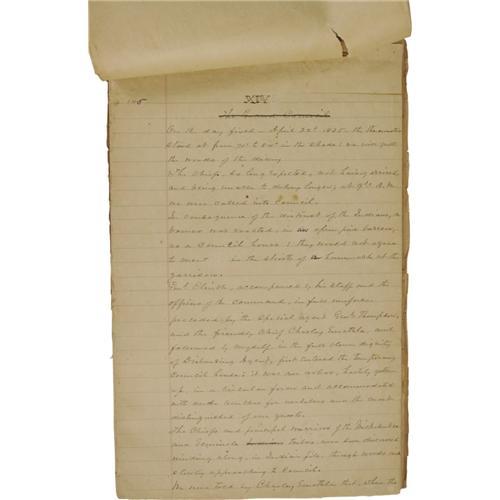 XIV
The Grand Council
On the day fixed - April 22d. 1835 - the thermometer
stood at from 70° to 80° in the shade: we give just
the words of the
The Chiefs, so long expected, not having arrived,
and being unable to delay longer; at 9 o'C. A.M.
we were called into Council.
In consequence of the distrust of the Indians, a
was erected, in an open pine barren,
as a Council house; they would not agree
to meet in the shade of a hommock at the
garrison.
Genl. Clinch, accompanied by his staff and the
officers of the command, in full uniform
preceded by the Special Agent Genl. Thompson,
and the friendly Chief Charley Emathla, and
followed by myself, in the full blown dignity
of Disbursing Agent, first entered the temporary
Council house: it was an arbor, hastily gotten
up, in a circular form and accommodated
with rude benches for ourselves and the most
distinguished of our guests.
The Chiefs and principal warriors of the Mickasukie
and Seminole tribes were soon discovered
winding along, in Indian file, through woods and
slowly approaching to Council.
We were told by Charley Emathla that, when the